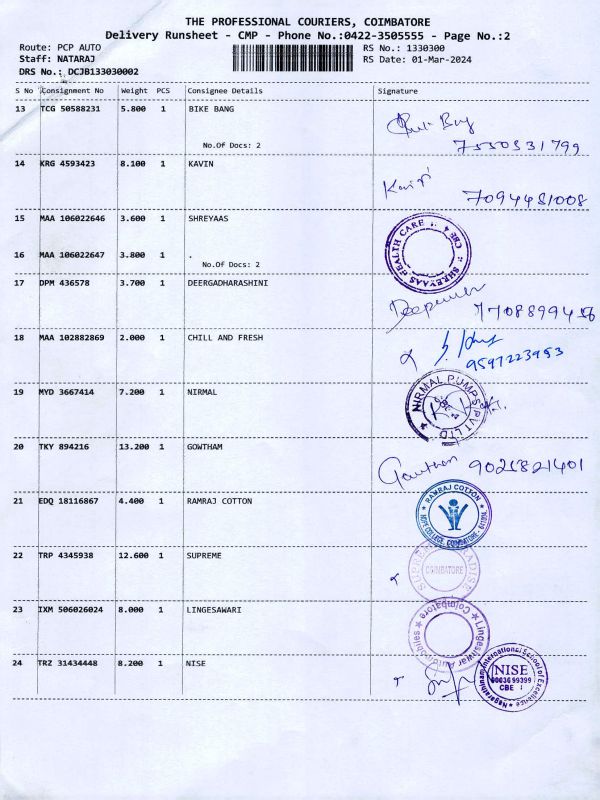 THE PROFESSIONAL COURIERS, COIMBATORE
Delivery Runsheet - CMP - Phone No.:0422-3505555 - Page No.:2
Route: PCP AUTO RS No.: 1330300
Staff: NATARAJ RS Date: 01-Mar-2024
DRS No.: DCJB133030002
S No Consignment No Weight PCS Consignee Details Signature
13 TCG 50588231 5.800 1 BIKE BANG
No.Of Docs: 2
14 KRG 4593423 8.100 1 KAVIN
7094481008
15 MAA 106022646 3.600 1 SHREYAAS
SHREYAAS HEALTH CARE CBE
16 MAA 106022647 3.800 1 .
No.Of Docs: 2
17 DPM 436578 3.700 1 DEERGADHARASHINI
18 MAA 102882869 2.000 1 CHILL AND FRESH
9597223953
19 MYD 3667414 7.200 1 NIRMAL
NIRMAL PUMPS PVT LTD
20 TKY 894216 13.200 1 GOWTHAM
Gowtham 9025821401
21 EDQ 18116867 4.400 1 RAMRAJ COTTON
RAMRAJ COTTON
HOPE COLLEGE, COIMBATORE
22 TRP 4345938 12.600 1 SUPREME
SUPREME PARADISE
COIMBATORE
23 IXM 506026024 8.000 1 LINGESAWARI
Lingeshwar Automobiles Coimbatore
24 TRZ 31434448 8.200 1 NISE
Nagarathinam International School of Excellence
NISE
CBE